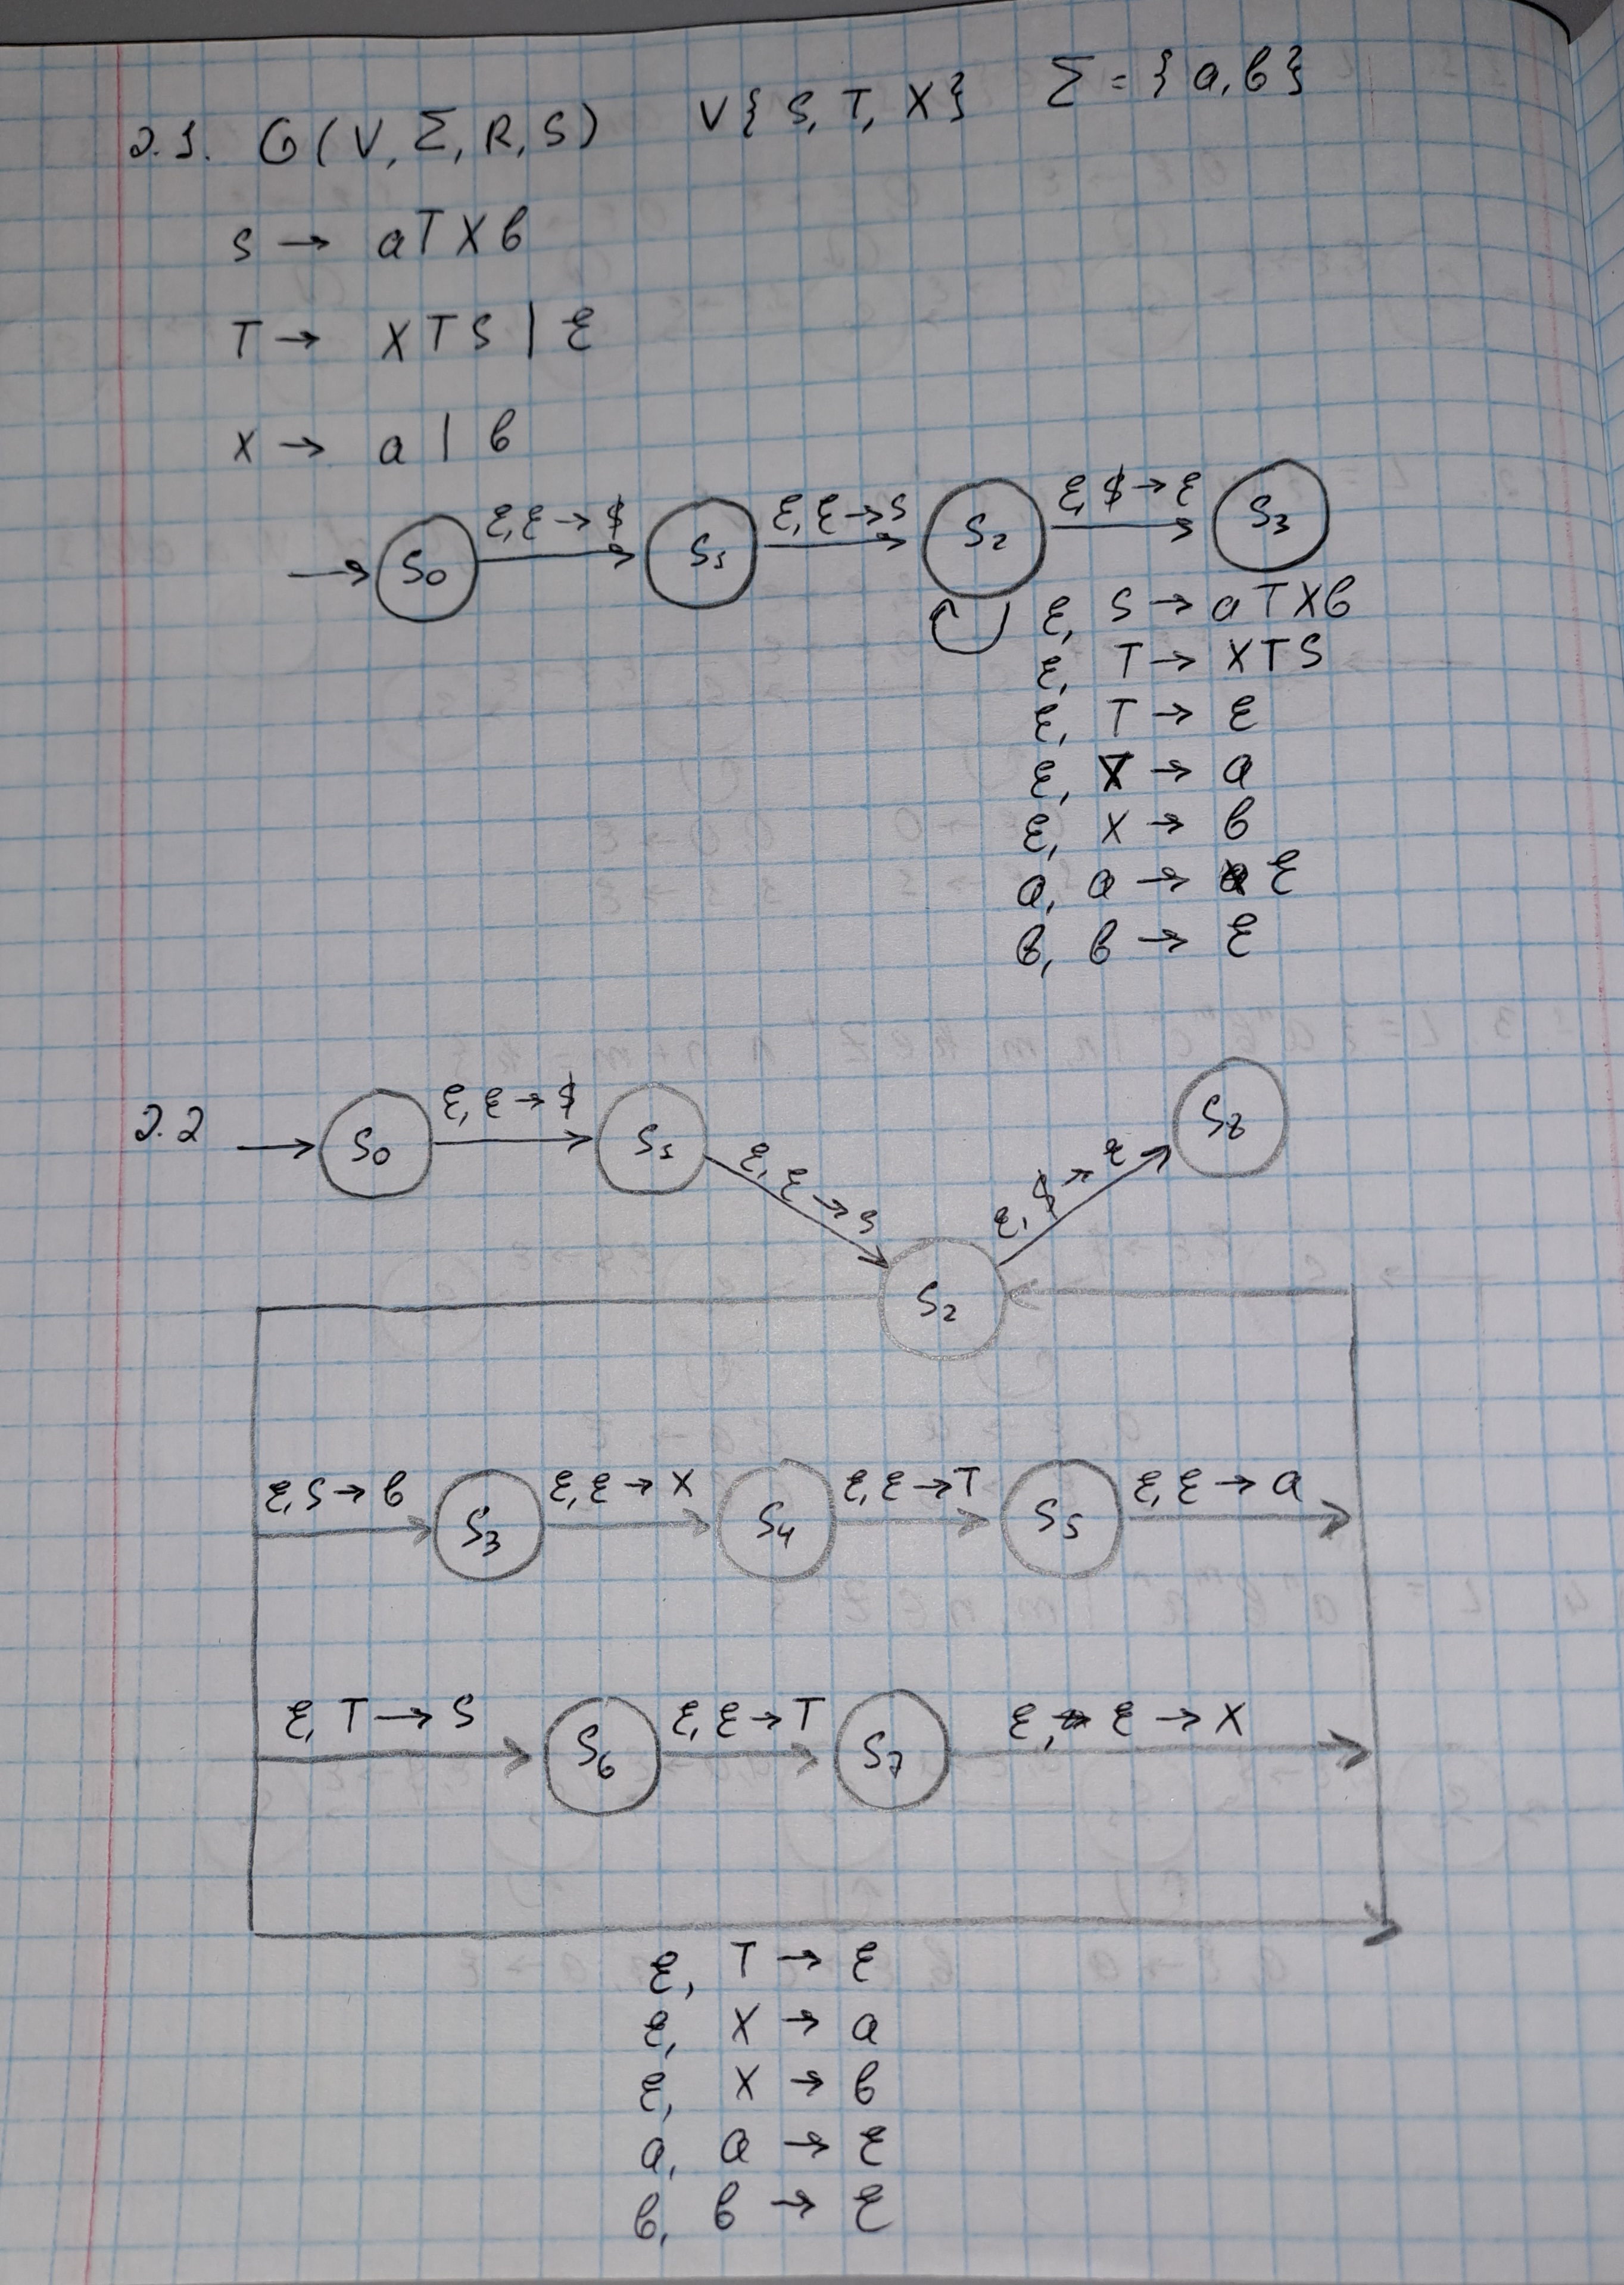 2.1. G(V, Σ, R, S) V{S, T, X} Σ = {a, b}
S → aTXb
T → XTS | ε
X → a | b
ε, ε → $ ε, ε → S ε, $ → ε
S0 S1 S2 S3
ε, S → aTXb
ε, T → XTS
ε, T → ε
ε, X → a
ε, X → b
a, a → ε
b, b → ε
2.2 S0 ε, ε → $ S1 S8
ε, ε → S ε, $ → ε
S2
ε, S → b S3 ε, ε → X S4 ε, ε → T S5 ε, ε → a
ε, T → S S6 ε, ε → T S7 ε, ε → X
ε, T → ε
ε, X → a
ε, X → b
a, a → ε
b, b → ε